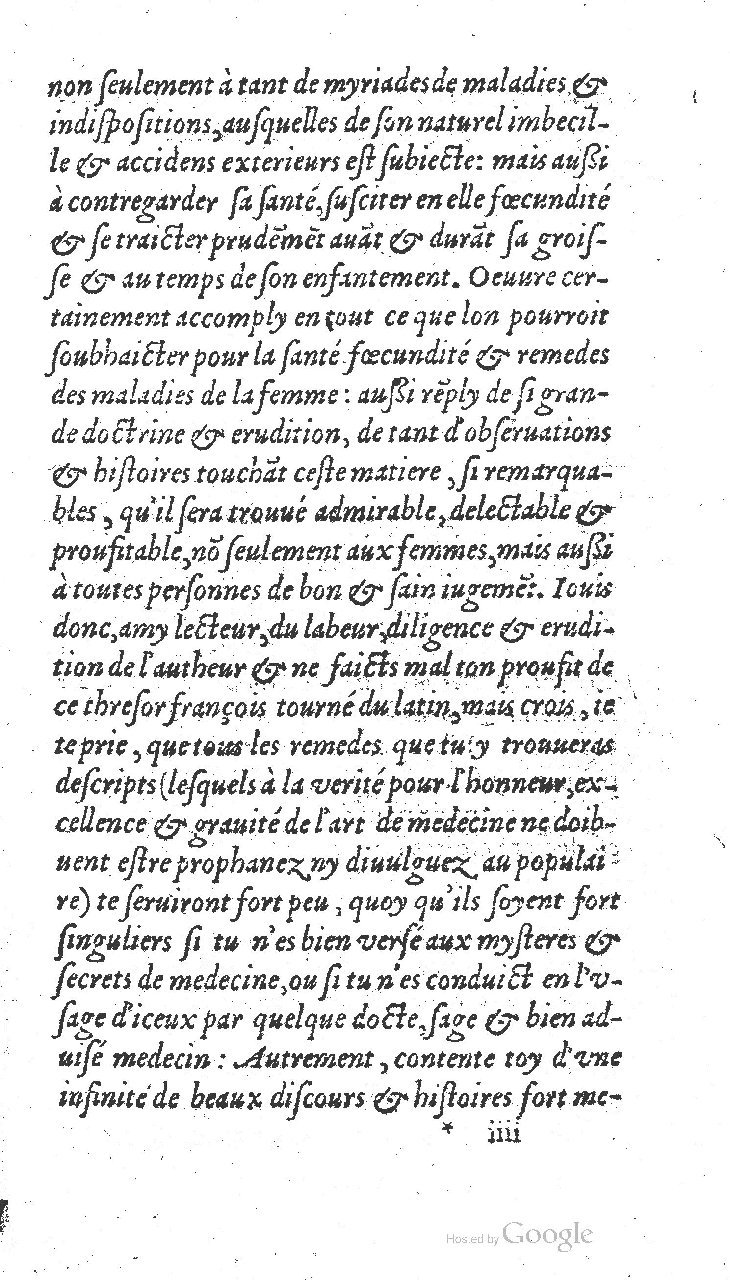 non ſeulement à tant de myriades de maladies &
indiſpoſitions, auſquelles de ſon naturel imbecil-
le & accidens exterieurs eſt ſubiecte: mais auſſi
à contregarder ſa ſanté, ſuſciter en elle fœcundité
& ſe traicter prudēmēt auāt & durāt ſa groiſ-
ſe & au temps de ſon enfantement. Oeuure cer-
tainement accomply en tout ce que lon pourroit
ſoubhaicter pour la ſanté fœcundité & remedes
des maladies de la femme : auſſi rēply de ſi gran-
de doctrine & erudition, de tant d'obſeruations
& hiſtoires touchāt ceſte matiere, ſi remarqua-
bles, qu'il ſera trouué admirable, delectable &
proufitable, nō ſeulement aux femmes, mais auſſi
à toutes perſonnes de bon & ſain iugemēt. Iouis
donc, amy lecteur, du labeur, diligence & erudi-
tion de l'autheur & ne faicts mal ton proufit de
ce threſor françois tourné du latin, mais crois, ie
te prie, que tous les remedes que tu y trouueras
deſcripts (leſquels à la verité pour l'honneur, ex-
cellence & grauité de l'art de medecine ne doib-
uent eſtre prophanez ny diuulguez au populai
re) te ſeruiront fort peu, quoy qu'ils ſoyent fort
ſinguliers ſi tu n'es bien verſé aux myſteres &
ſecrets de medecine, ou ſi tu n'es conduict en l'v-
ſage d'iceux par quelque docte, ſage & bien ad-
uiſé medecin : Autrement, contente toy d'vne
infinité de beaux diſcours & hiſtoires fort me-
* iiii
Hosted by Google